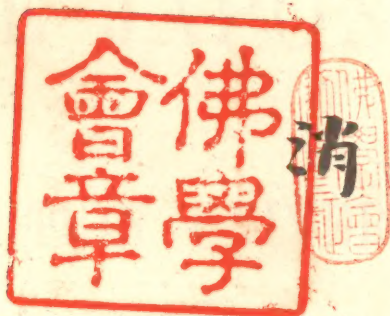 佛學
會章
消